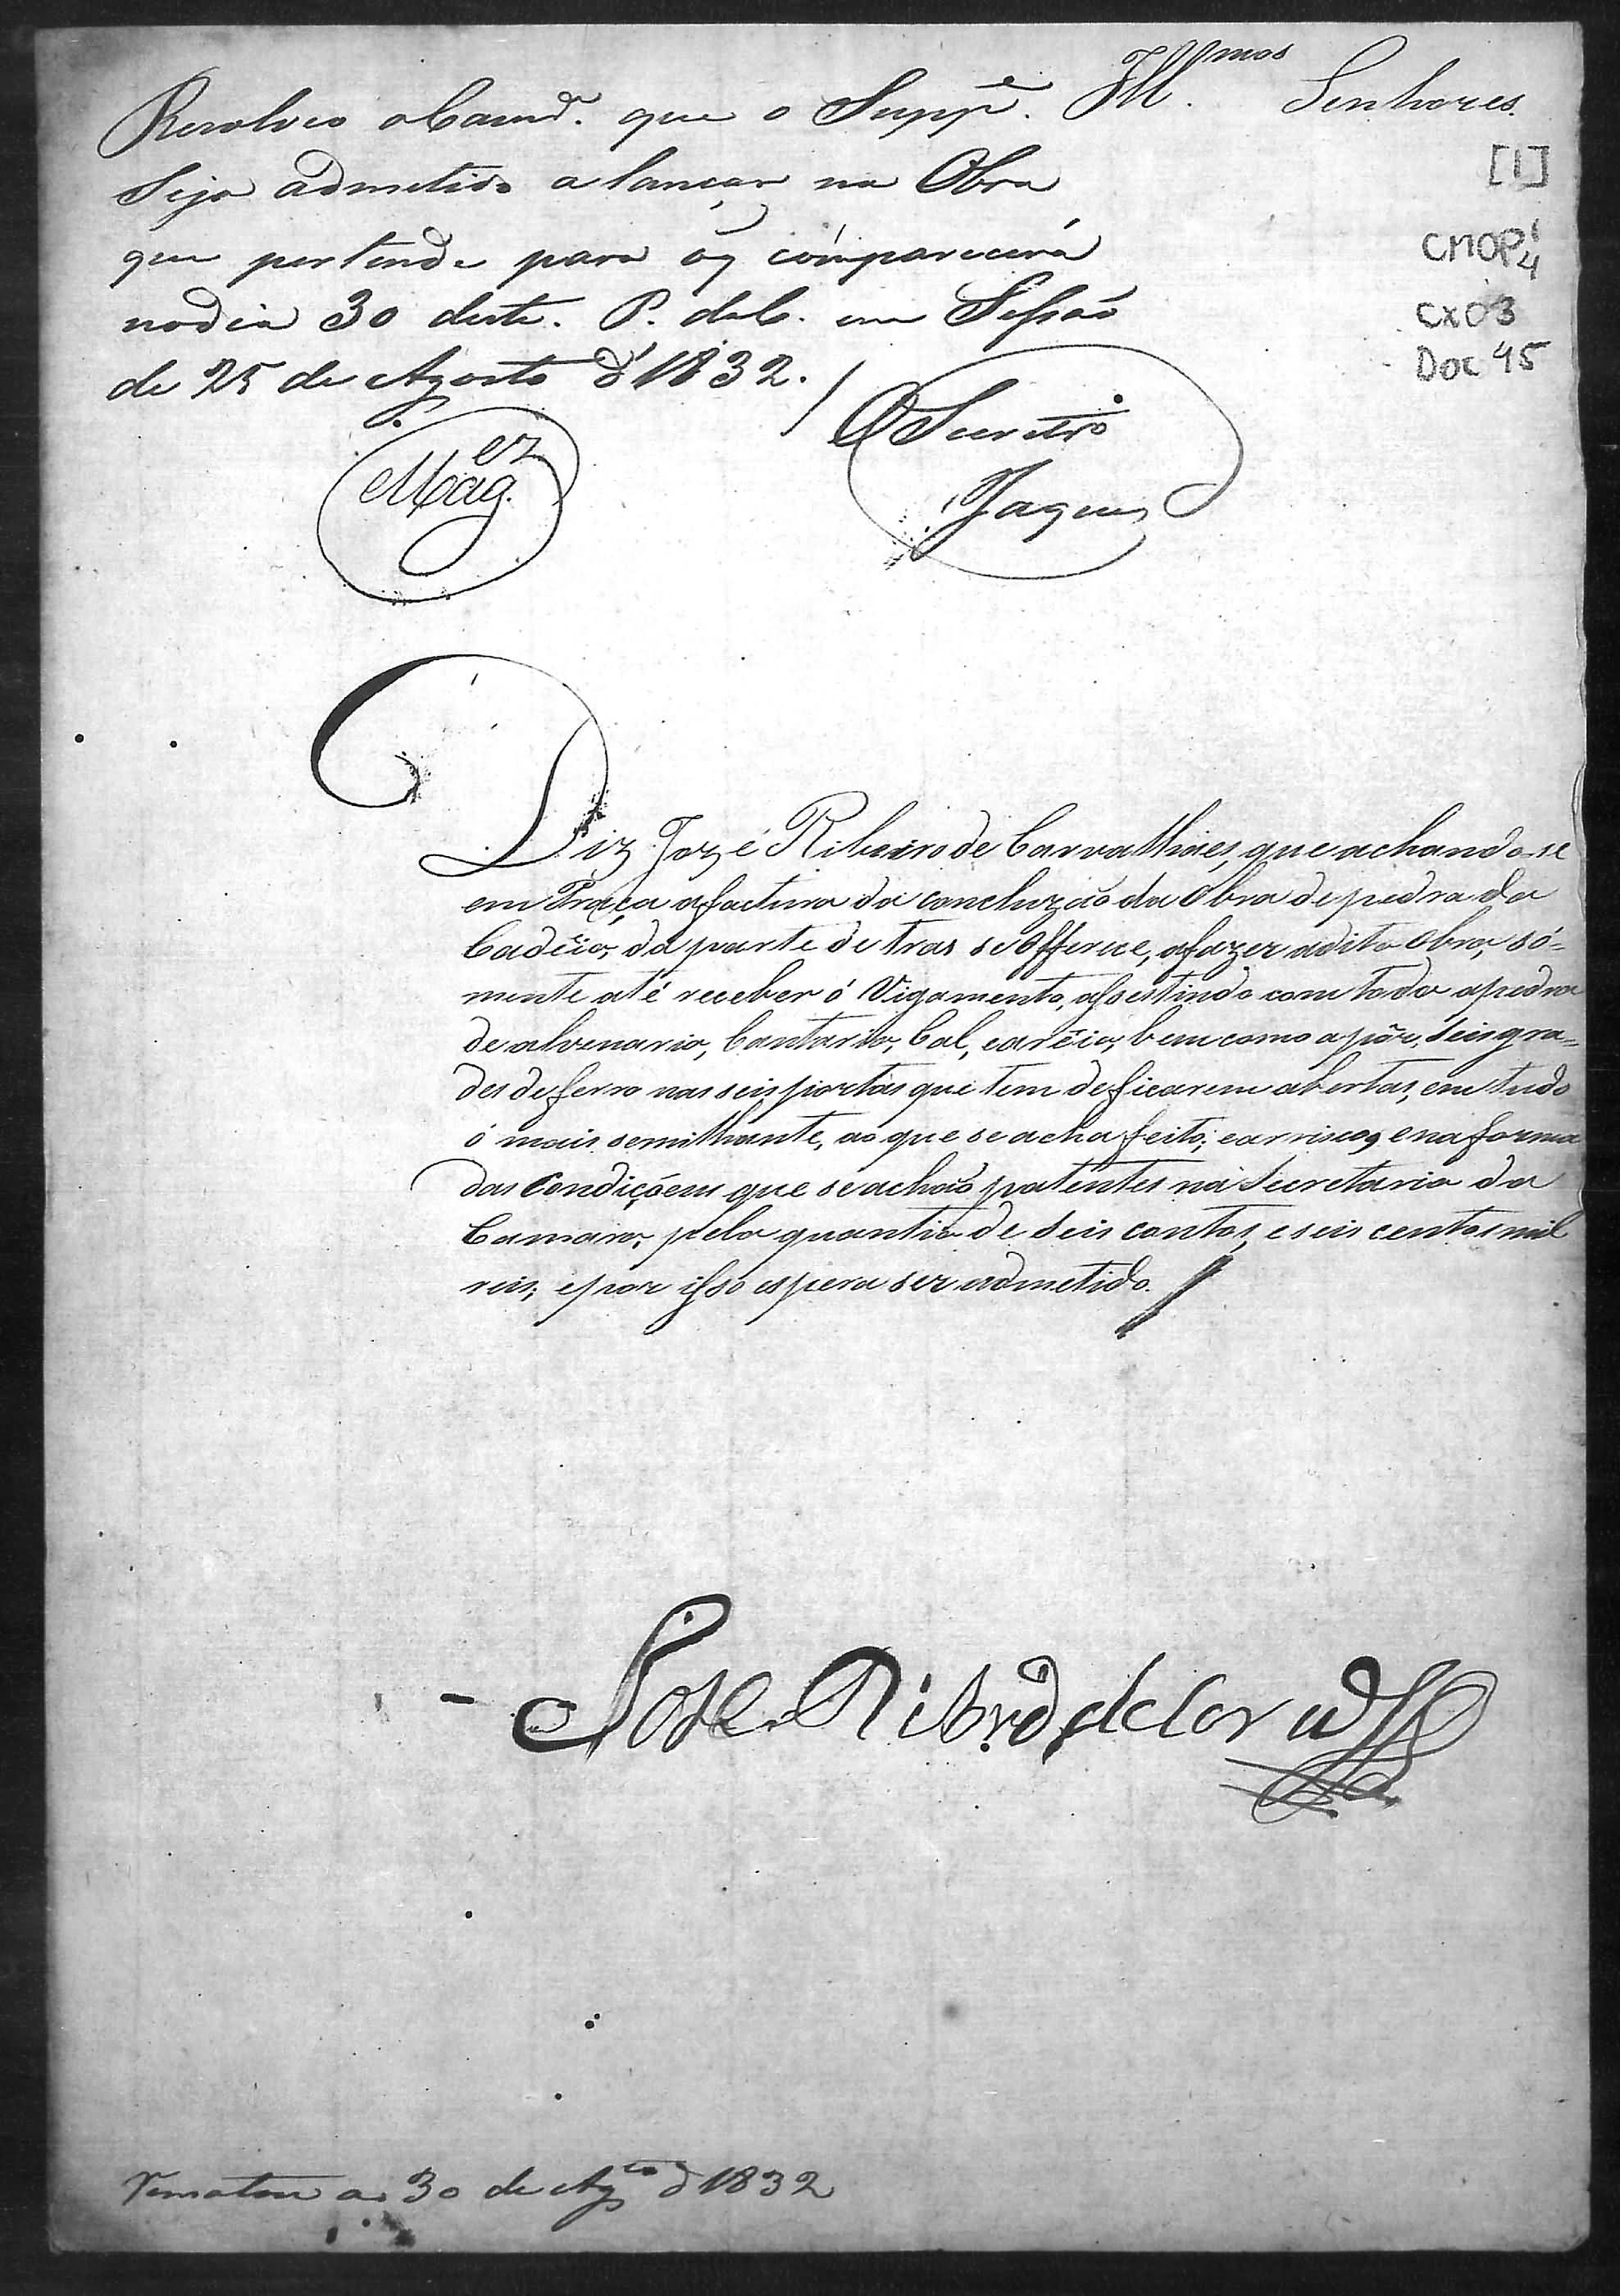 Ill.mos Senhores.
Resolveo a Camr.ª que o Supp.e
Seja admetido a lançar na Obra
que pertende para o q comparecerá
no dia 30 deste. P. da C. em Sessão
de 25 de Agosto d' 1832.
P.
Mag.ez
O Secretrio
Jaques
[1]
CMOP 1/4
CX 03
Doc 45
Diz Jozé Ribeiro de Carvalhaes, que achando-se
em Praça a factura da concluzão da Obra de pedra da
Cadêia, da parte de tras se Offerece, a fazer a dita obra, só-
mente até receber ó Vigamento, assestindo com toda a pedra
de alvenaria, Cantaria, Cal, e arêia, bem como a pôr, seis gra-
des de ferro nas seis portas que tem de ficarem abertas, em tudo
ó mais semilhante, ao que se acha feito; e a risco, e na forma
das Condiçõens que se achaõ patentes na Secretaria da
Camara, pela quantia de seis contos, e seis centos mil
reis; e por isso espera ser admetido.
Jose Ribr.o de Carv.es
Rematou a 30 de Ag.to d 1832